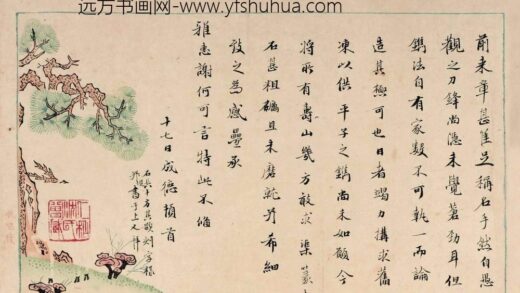 远方书画网-www.yfshuhua.com
前来章甚佳足称石手然自愚
观之刀锋尚隐未觉苍劲耳但
镌法自有家数不可执一而论
造其极可也日者竭力构求旧
冻以供平子之镌尚未如愿今
将所有寿山几方敢求渠篆
石甚粗砺且未磨就并希细
致之为感叠承
雅惠谢何可言特此不备
十七日成德顿首